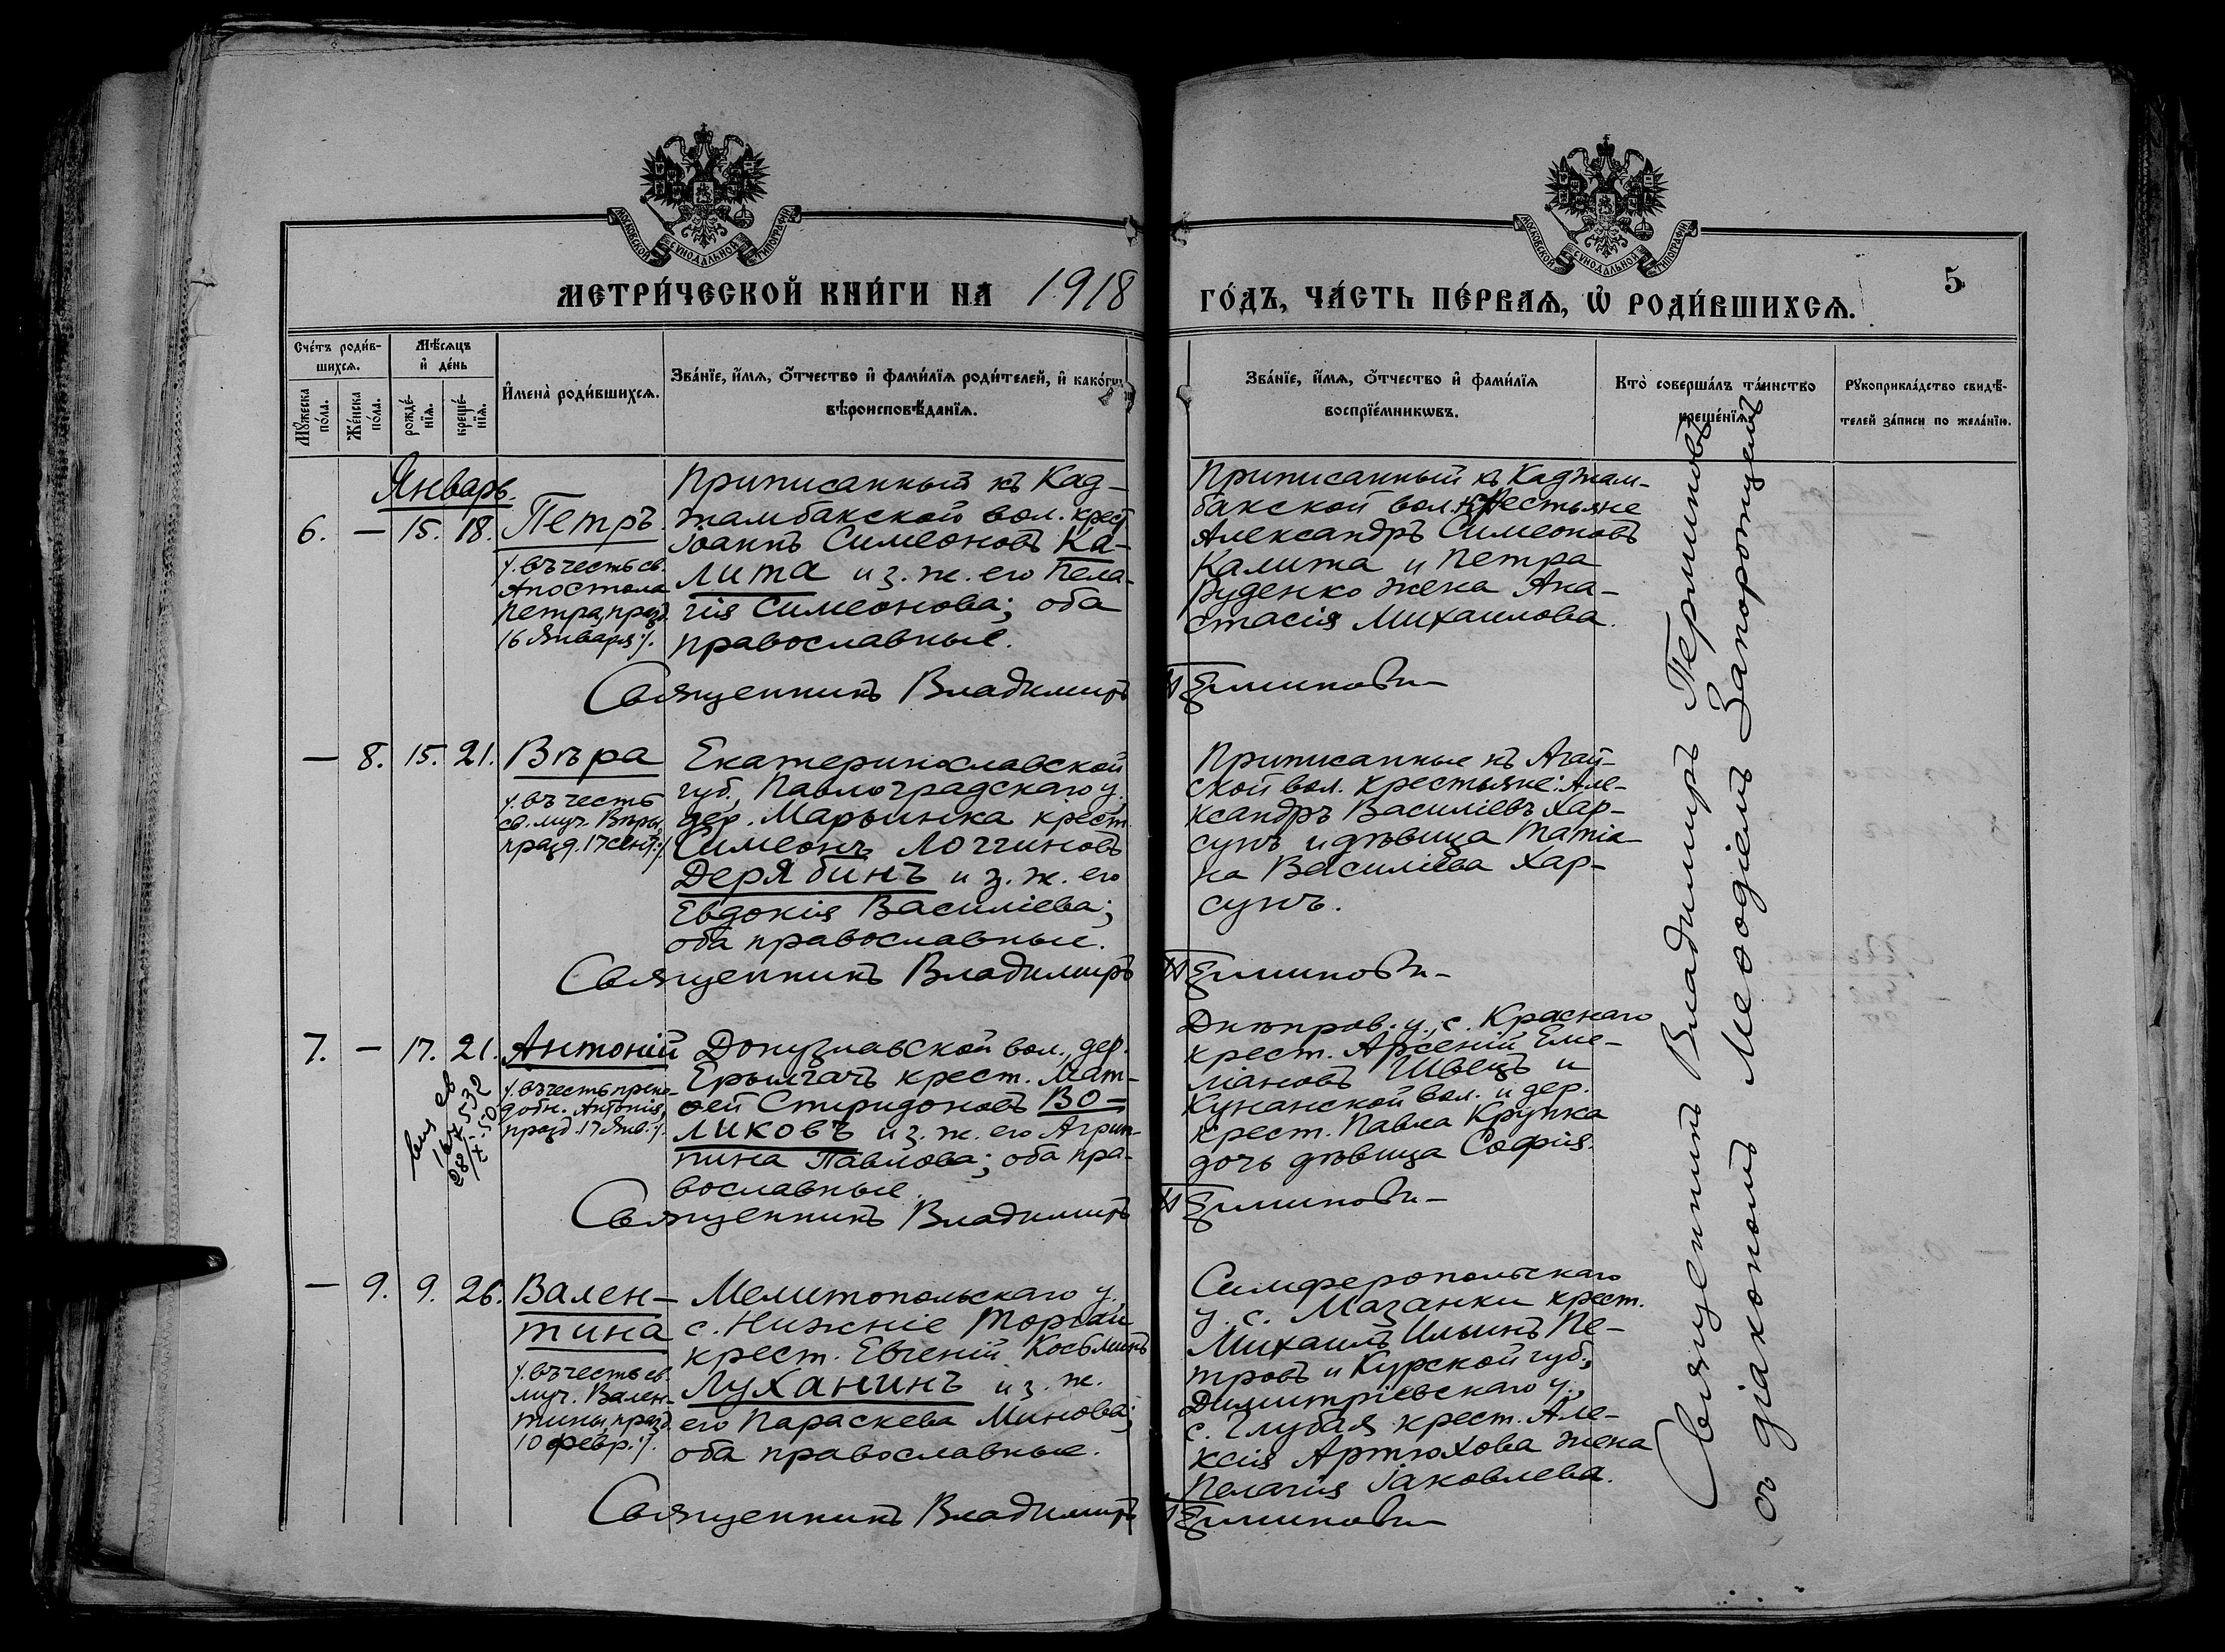 МОСКОВСКОЙ СѴНОДАЛЬНОЙ ТИПОГРАФІИ
МОСКОВСКОЙ СѴНОДАЛЬНОЙ ТИПОГРАФІИ
МЕТРИ́ЧЕСКОЙ КНИ́ГИ НА 1918
ГО́ДЪ, ЧА́СТЬ ПЕ́РВАЯ, Ѡ РОДИ́ВШИХСЯ.
5
Сче́тъ роди́в-
шихся.
Мѣ́сяцъ
и де́нь
Мꙋжеска по́ла.
Же́нска по́ла.
рожде́-
нїя.
креще́-
нїя.
Имена̀ роди́вшихся.
Зва́нїе, и́мя, о́тчество и фами́лїя роди́телей, и како́гѡ
вѣроисповѣ́данїя.
Зва́нїе, и́мя, о́тчество и фами́лїя
воспрїе́мникѡвъ.
Кто̀ соверша́лъ та́инство
креще́нїя.
Рꙋкоприкла́дство свидѣ́-
телей за́писи по жела́нїю.
Январь.
6. — 15. 18. Петръ
/. въ честь св.
Апостола
Петра, празд.
16 Января ./.
Приписанный къ Кад-
жамбакской вол. крест
Іоаннъ Симеоновъ Ка-
лита и з. ж. его Пела-
гія Симеонова; оба
православные.
Приписанный къ Каджам-
бакской вол. крестьяне
Александръ Симеоновъ
Калита и Петра
Руденко жена Ана-
стасія Михаилова.
Священникъ Владимиръ
— 8. 15. 21. Вѣра
/. въ честь
св. муч. Вѣры,
празд. 17 сент. ./.
Екатеринославской
губ., Павлоградскаго у.
дер. Марьинка крест.
Симеонъ Логгиновъ
Дерябинъ и з. ж. его
Евдокія Василіева;
оба православные.
Приписанные къ Агай-
ской вол. крестьяне: Але-
ксандръ Василіевъ Хар-
сунъ и дѣвица Татіа-
на Василіева Хар-
сунъ.
Священникъ Владимиръ
7. — 17. 21. Антоній
/. въ честь препо-
добн. Антонія,
празд. 17 Янв. ./.
28/X-50
Донузлавской вол., дер.
Ерылгачъ крест. Мат-
ѳей Спиридоновъ Во-
ликовъ и з. ж. его Агрип-
пина Павлова; оба пра-
вославные.
Днѣпров. у., с. Краснаго
крест. Арсеній Еме-
ліановъ Швецъ и
Кунанской вол. и дер.
крест. Павла Крупка
дочь дѣвица Софія.
Священникъ Владимиръ
— 9. 9. 26. Вален-
тина
/. въ честь св.
муч. Вален-
тины, празд.
10 февр. ./.
Мелитопольскаго у.,
с. Нижніе Торгаи
крест. Евгеній Косьминъ
Луханинъ и з. ж.
его Параскева Минова;
оба православные.
Симферопольскаго
у. с. Мазанки крест.
Михаилъ Ильинъ Пе-
тровъ и Курской губ.,
Димитріевскаго у.,
с. Глубая крест. Але-
ксія Артюхова жена
Пелагія Іаковлева.
Священникъ Владимиръ
Священникъ Владимиръ
съ діакономъ Меѳодіемъ Запорожцемъ